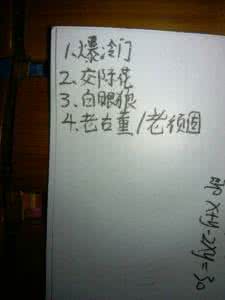 1.爆冷门
2.交际花
3.白眼狼
4.老古董/老顽固
即 x+y-2xy=30